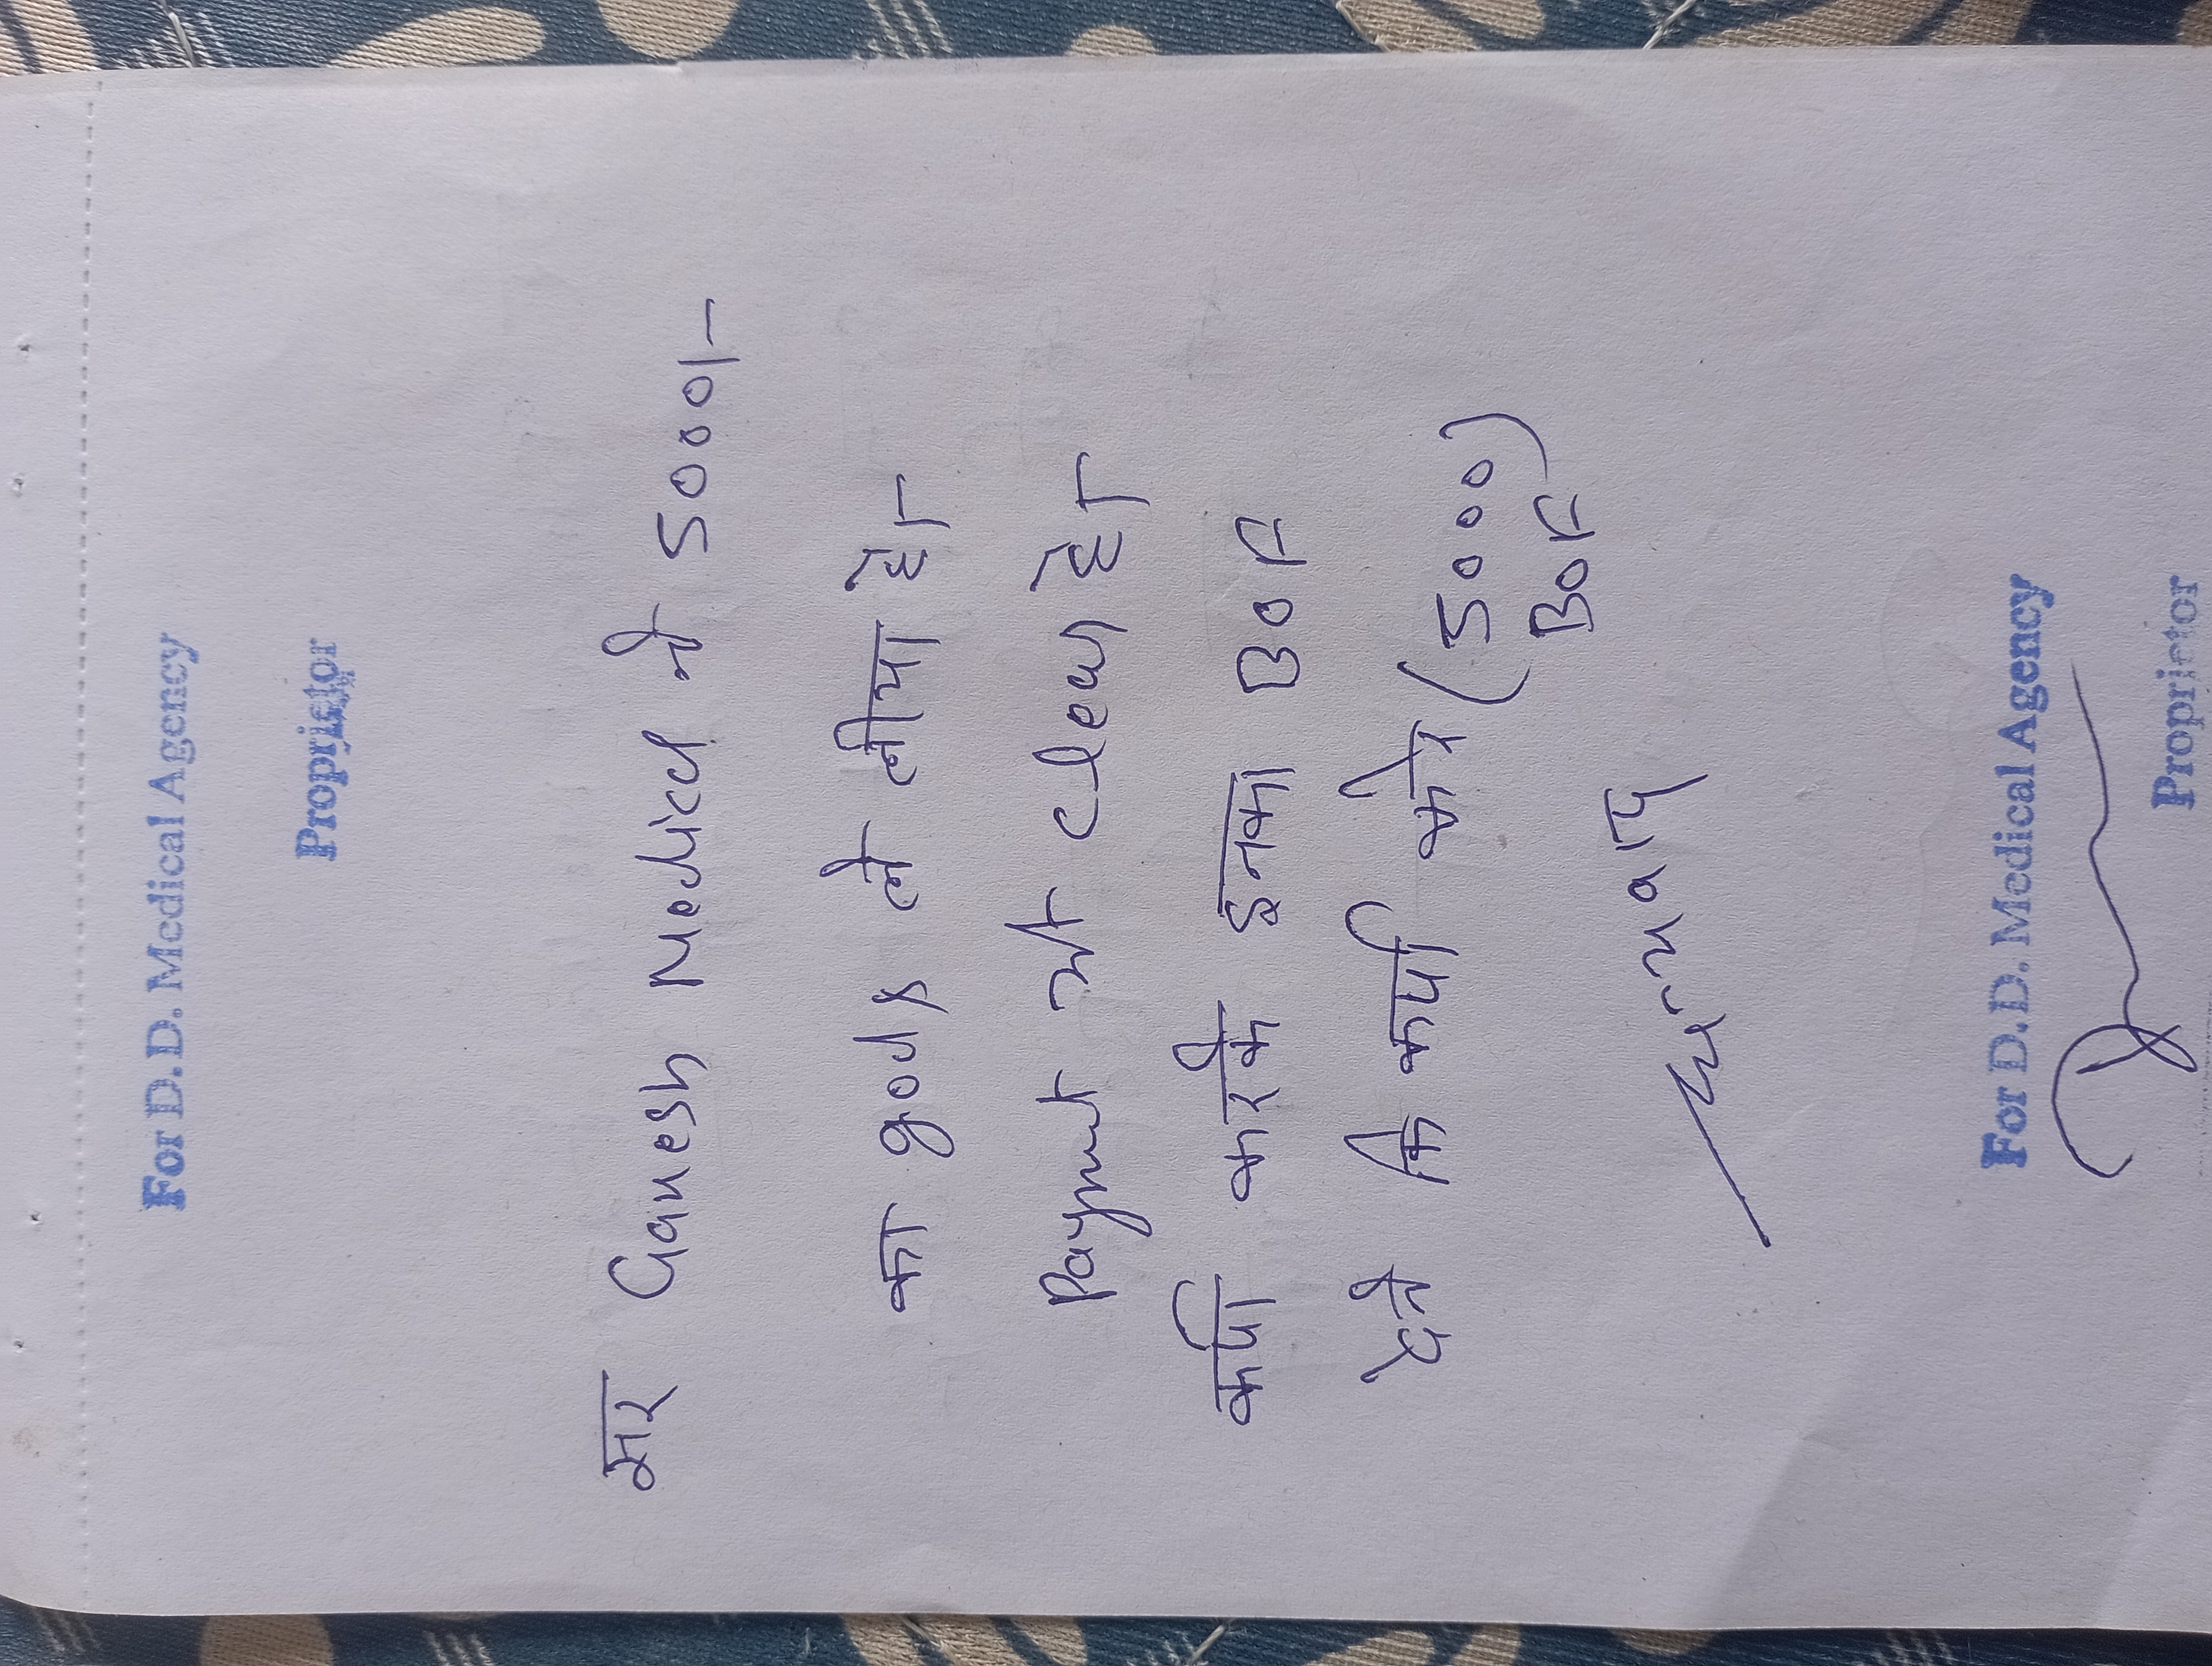 For D.D. Medical Agency
Proprietor
सर Ganesh Medical ने 5000/-
का gods ले लीया है।
Payment भी clear है।
कपी करके इनका BOR
देने कि कपी करे। (5000)
BOR
धन्यवाद
For D.D. Medical Agency
Proprietor